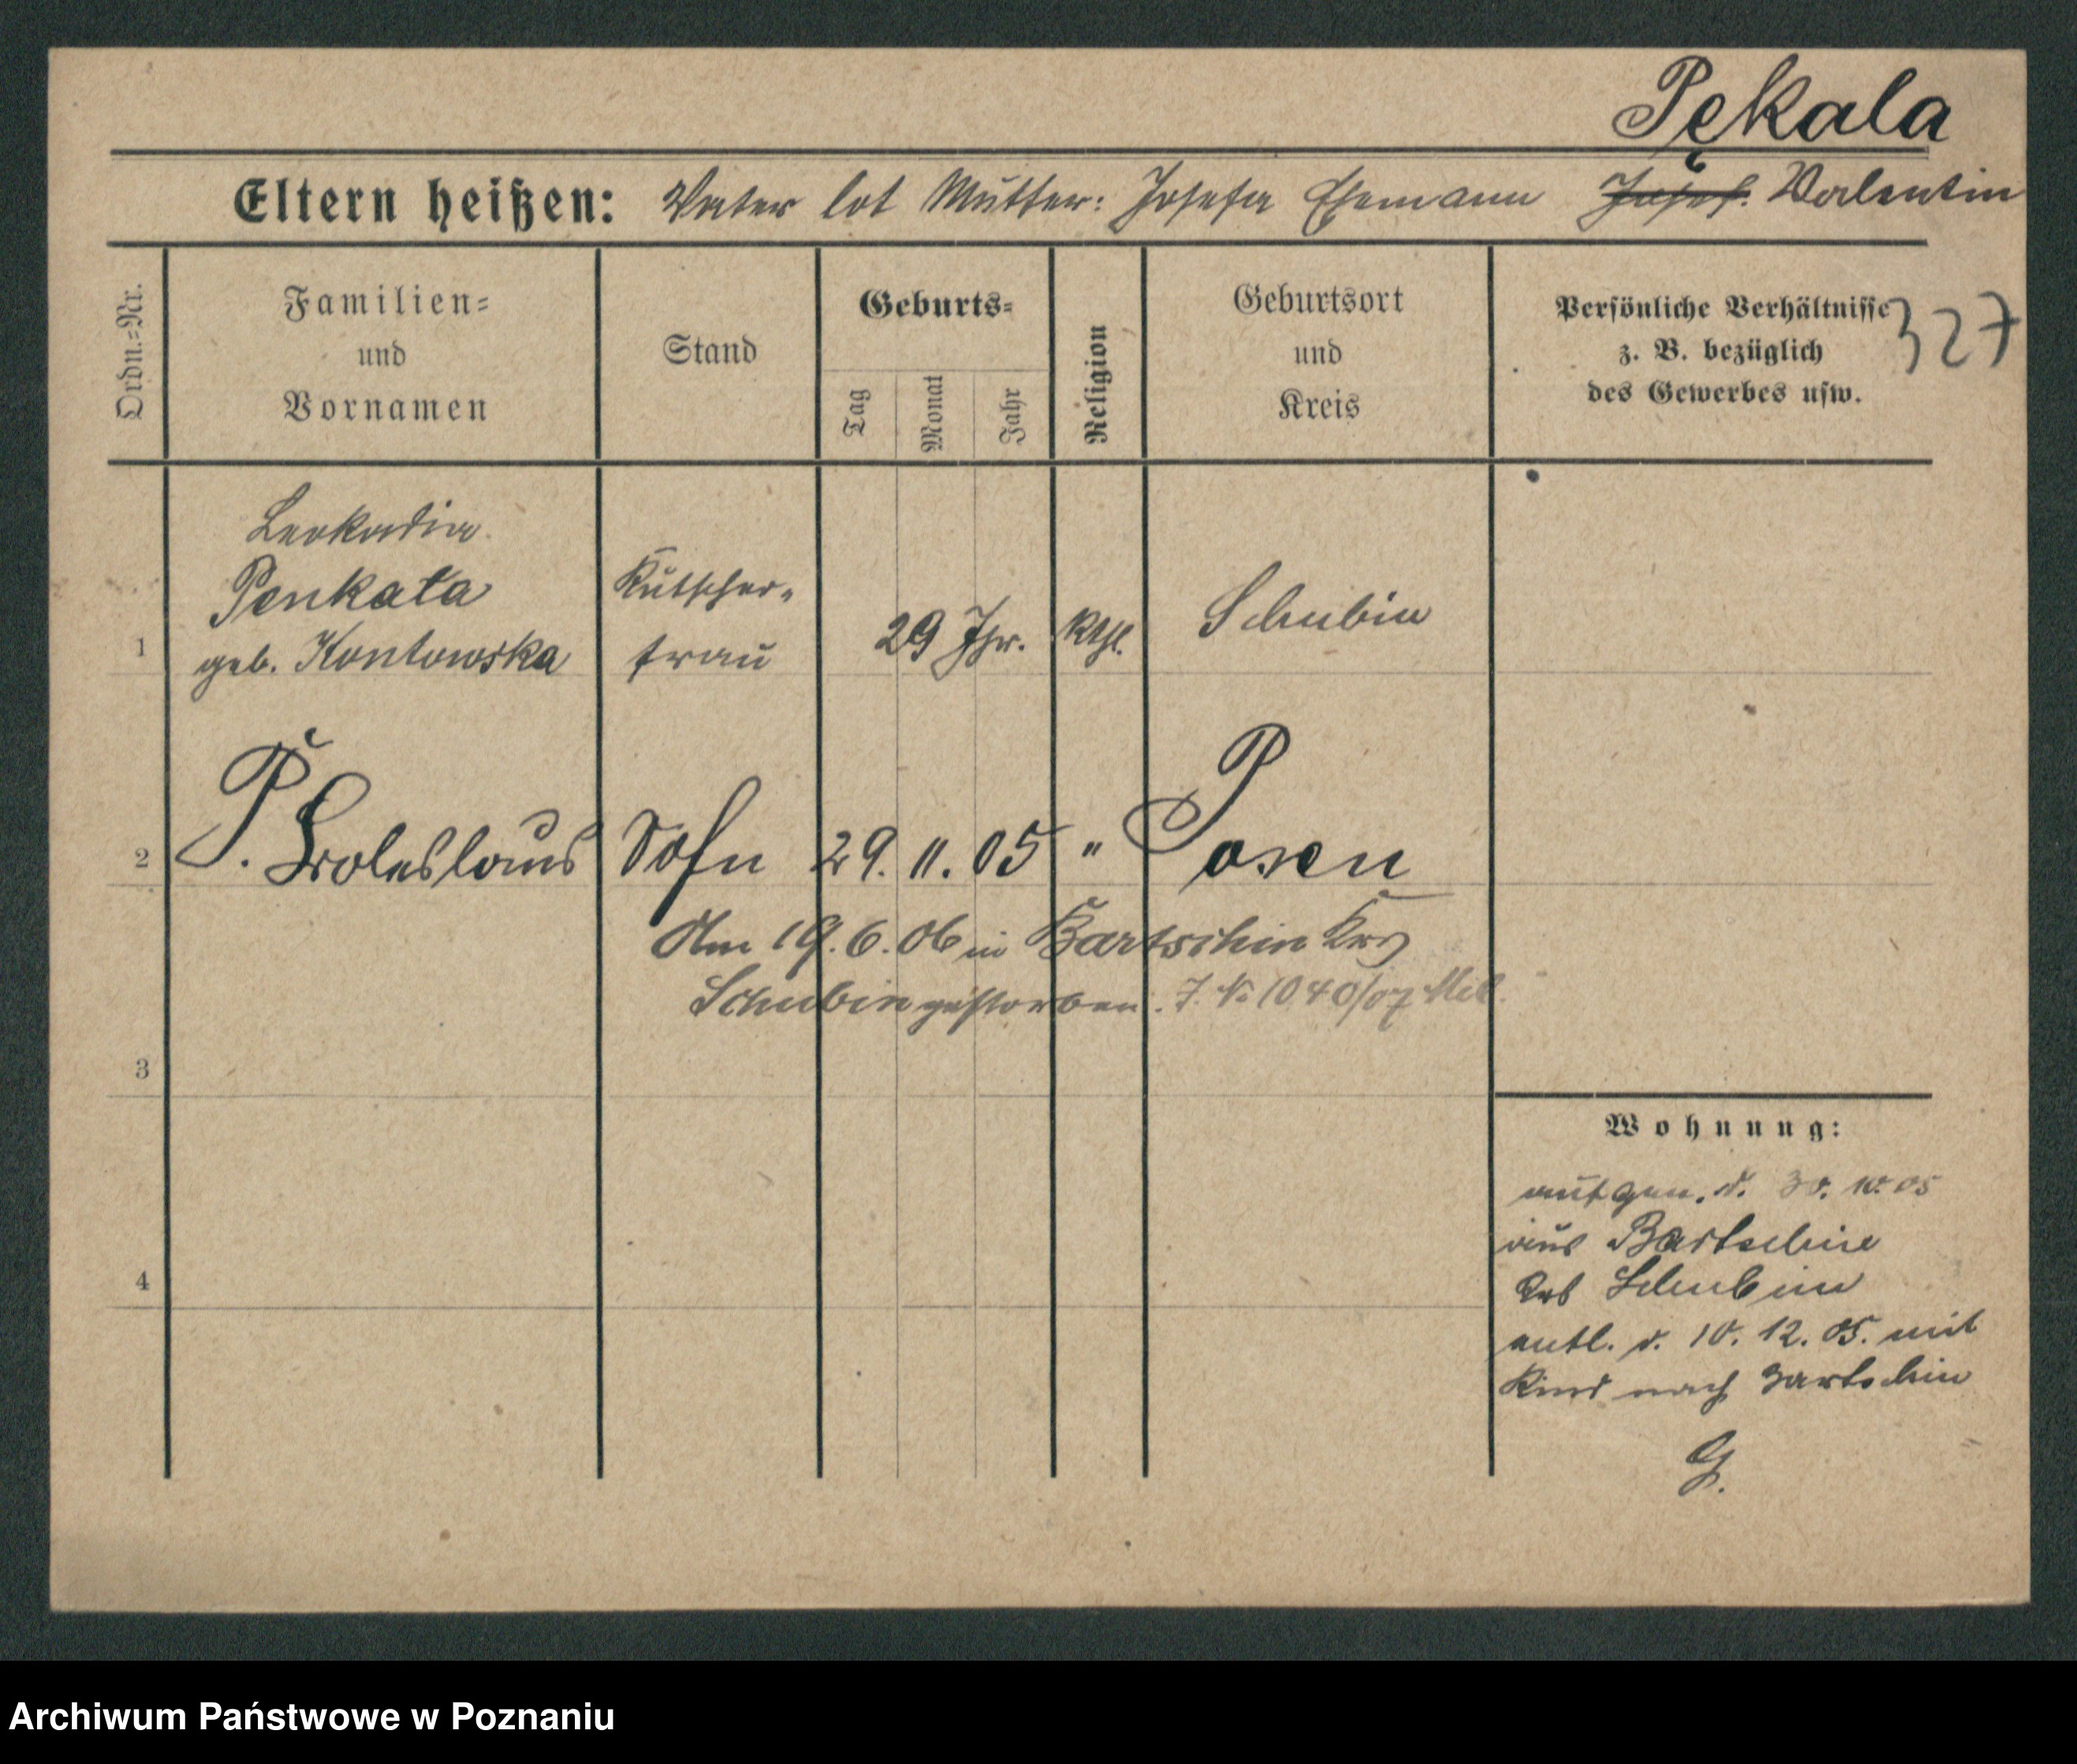 Pękala
Eltern heißen: Vater tot Mutter: Josefa Ehemann Josef. Valentin
Ordn.-Nr.
Familien-
und
Vornamen
Stand
Geburts-
Tag
Monat
Jahr
Religion
Geburtsort
und
Kreis
Persönliche Verhältnisse
z. B. bezüglich
des Gewerbes usw.
327
1
Leokadia
Penkała
geb. Kontowska
Kutscher-
frau
29 Jhr.
Kth.
Schubin
2
P. Boleslaus
Sohn
29. 11. 05
"
Posen
Am 19. 6. 06 in Bartschin Krs
Schubin gestorben. J. № 1040/07 Mil.
3
4
Wohnung:
aufgen. d. 30. 10. 05
aus Bartschin
Krs Schubin
entl. d. 10. 12. 05. mit
Kind nach Bartschin
G.
Archiwum Państwowe w Poznaniu